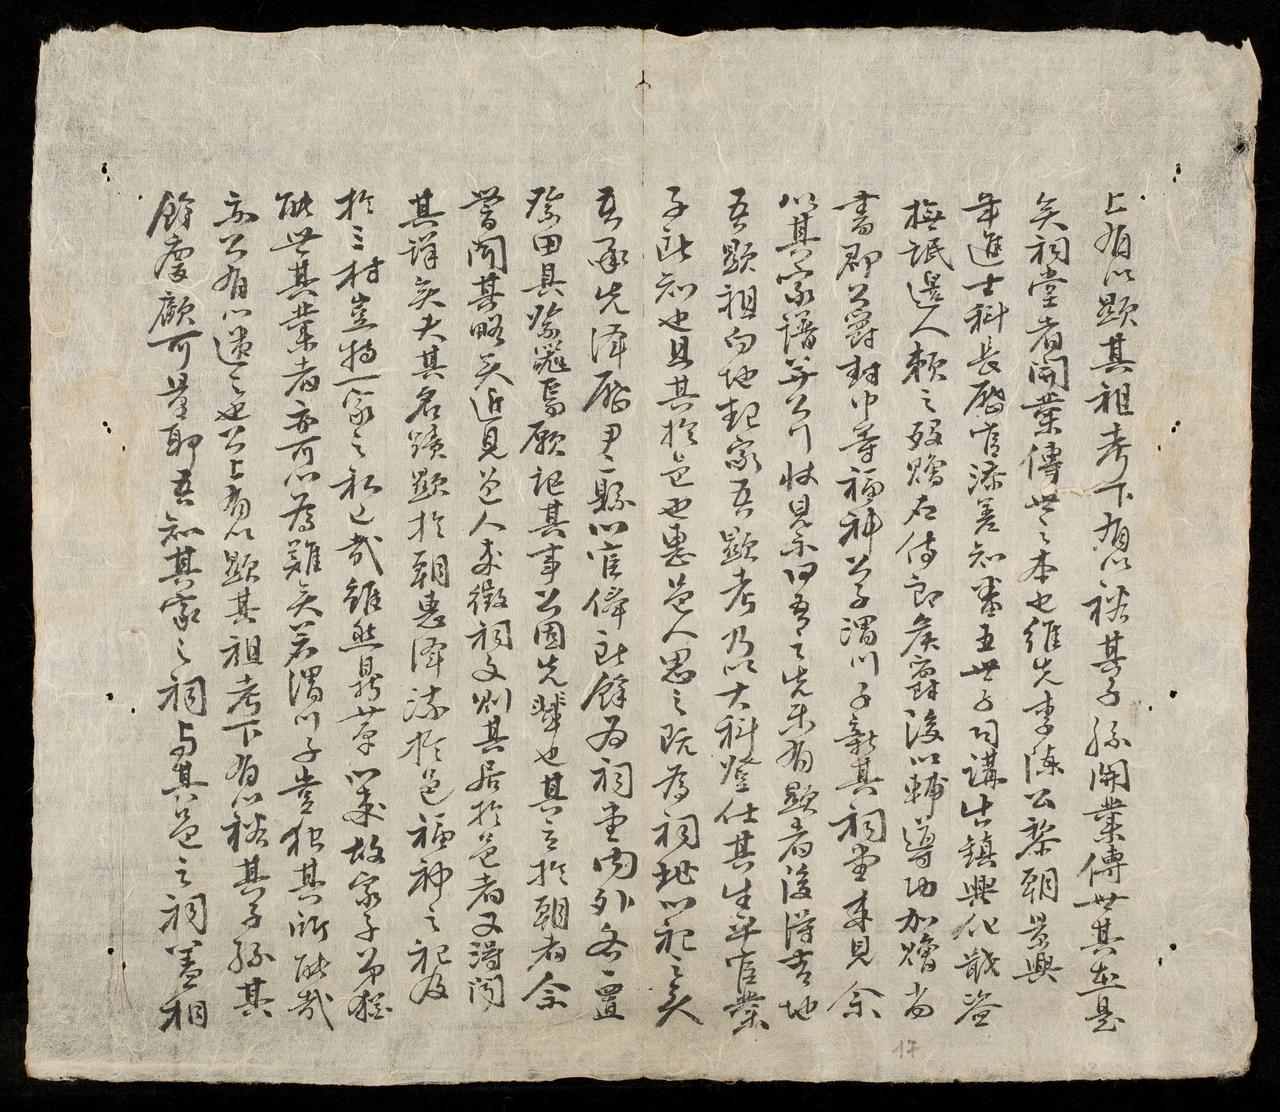 上有以顯其祖考下有以裕其子孫開業傳世其在是
矣祠堂者開業傳世之本也維先李陳公黎朝景興
年進士科長歷官添差知番五世子司講出鎮興化戢盜
撫氓邊人賴之歿贈右侍郎侯爵後以輔導功加贈尚
書郡公爵封中等福神公子渭川子新其祠堂來見余
以其家譜并公行狀見示曰吾之先未有顯者後得吉地
吾顯祖向地起家吾顯考乃以大科登仕其生平官業
子所知也且其於邑也惠邑人思之既為祠地以祀之矣
吾承先澤歷尹二縣以官俸所餘為祠堂內外各一置
祭田具祭器焉願記其事公固先輩也其立於朝者余
嘗聞其略矣近見邑人來徵祠文則其居於邑者又得聞
其詳矣夫其名蹟顯於朝惠澤流於邑福神之祀及
於三村豈特一家之私已哉雖然鼎革以來故家子弟猶
能世其業者亦可以為難矣若渭川子豈獨其所能哉
亦公有以遺之也公上有以顯其祖考下有以裕其子孫其
餘慶顧可量耶吾知其家之祠與其邑之祠蓋相
17